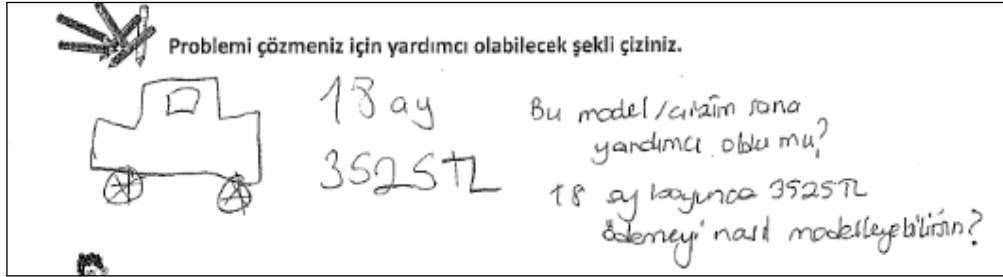 Problemi çözmeniz için yardımcı olabilecek şekli çiziniz.
18 ay
3525TL
Bu model/çizim sana
yardımcı oldu mu?
18 ay boyunca 3525TL
ödemeyi nasıl modelleyebilirsin?